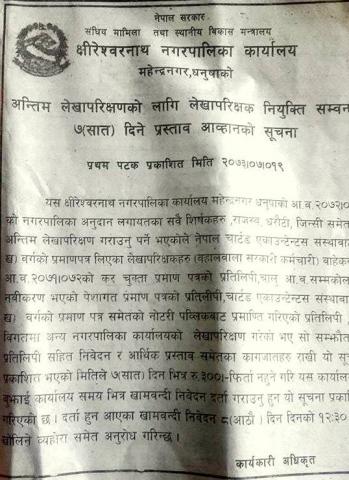 नेपाल सरकार
संघिय मामिला तथा स्थानीय विकास मन्त्रालय
क्षीरेश्वरनाथ नगरपालिका कार्यालय
महेन्द्रनगर,धनुषाको
अन्तिम लेखापरिक्षणको लागि लेखापरिक्षक नियुक्ति सम्वन
७(सात) दिने प्रस्ताव आव्हानको सूचना
प्रथम पटक प्रकाशित मिति २०७३।०७।०१९
यस क्षीरेश्वरनाथ नगरपालिका कार्यालय महेन्द्रनगर धनुषाको आ.व.२०७२।०
को नगरपालिका अनुदान लगायतका सवै शिर्षकहरु ,राजस्व, धरौटी, जिन्सी समेत
अन्तिम लेखापरिक्षण गराउनु पर्ने भएकोले नेपाल चार्टड एकाउन्टेन्टस संस्थाबा
ख) वर्गको प्रमाणपत्र लिएका लेखापरिक्षकहरु (वहालवाला सरकारी कर्मचारी) वाहेकर
आ.व.२०७१।०७२को कर चुक्ता प्रमाण पत्रको प्रतिलिपी,चालु आ.व.सम्मकोल
नवीकरण भएको पेशागत प्रमाण पत्रको प्रतिलीपी,चार्टड एकाउन्टेन्टस संस्थाबा
ख) वर्गको प्रमाण पत्र समेतको नोटरी पव्लिकबाट प्रमाणित गरिएको प्रतिलिपी
विगतमा अन्य नगरपालिका कार्यालयको लेखापरिक्षण गरेको भए सो सम्झौत
प्रतिलिपी सहित निवेदन र आर्थिक प्रस्ताव समेतका कागजातहरु राखी यो सूच
प्रकाशित भएको मितिले ७(सात) दिन भित्र रु.३००।-फिर्ता नहुने गरि यस कार्याल
बुझाई कार्यालय समय भित्र खामवन्दी निवेदन दर्ता गराउनु हुन यो सूचना प्रका
गरिएको छ । दर्ता हुन आएका खामवन्दी निवेदन ८(आठौं ) दिन दिनको १२:३०
खोलिने व्यहोरा समेत अनुरोध गरिन्छ ।
कार्यकारी अधिकृत